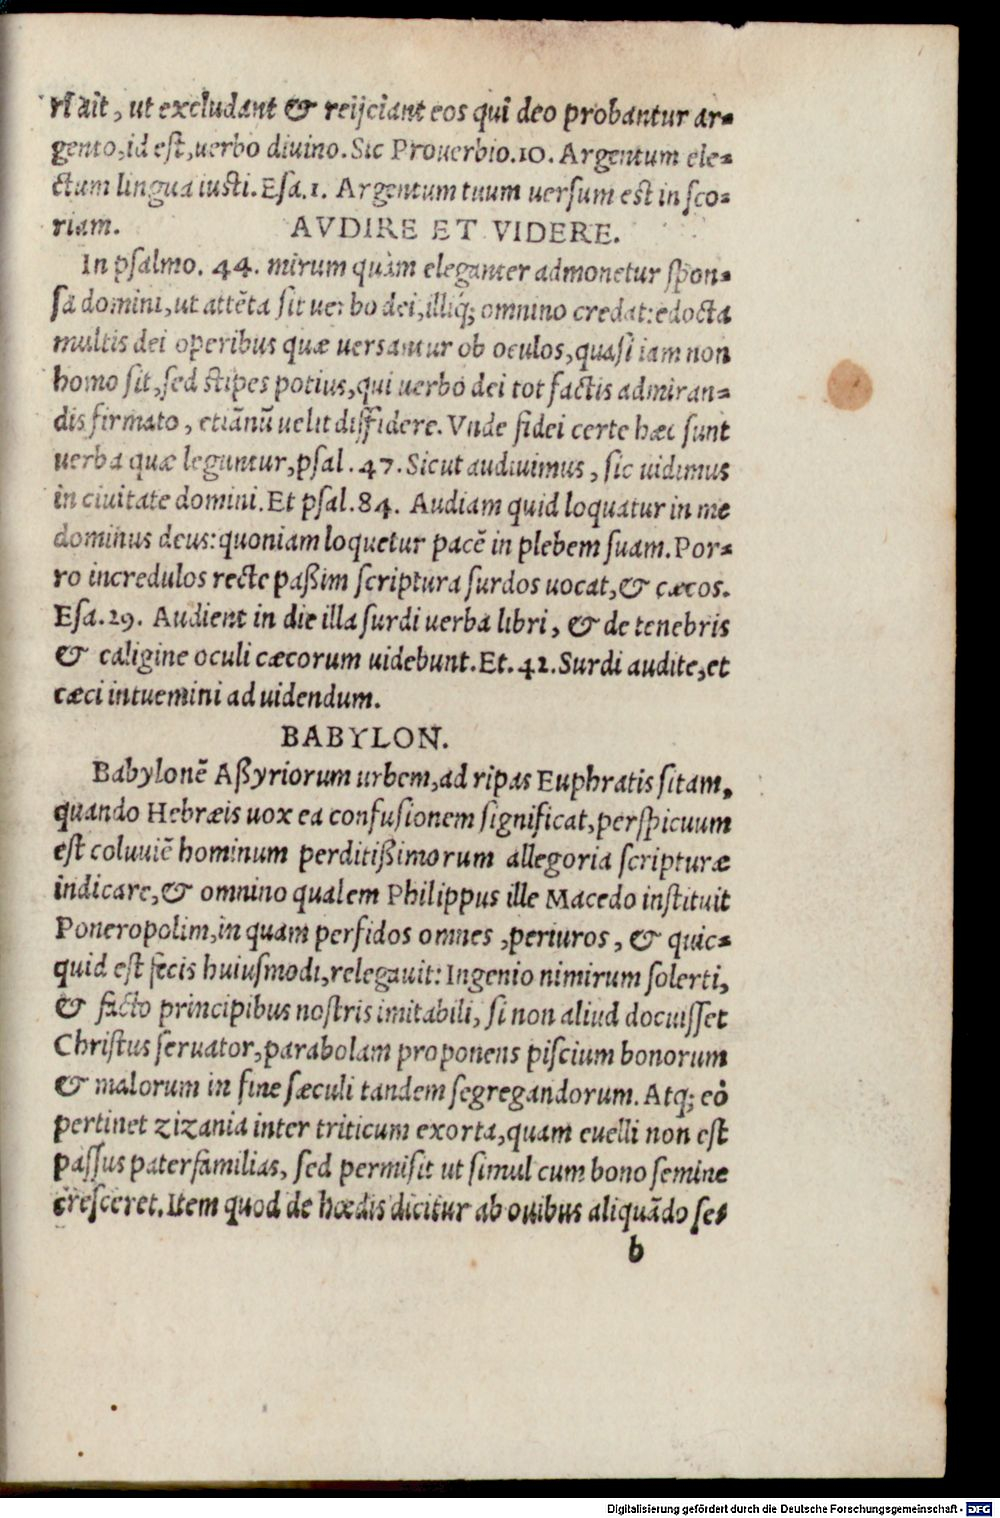 ri ait, ut excludant & reijciant eos qui deo probantur ar-
gento, id est, uerbo diuino. Sic Prouerbio. 10. Argentum ele-
ctum lingua iusti. Esa. 1. Argentum tuum uersum est in sco-
riam. AVDIRE ET VIDERE.
In psalmo. 44. mirum quàm eleganter admonetur spon-
sa domini, ut attēta sit uerbo dei, illiq; omnino credat: edocta
multis dei operibus quæ uersantur ob oculos, quasi iam non
homo sit, sed stipes potius, qui uerbo dei tot factis admiran-
dis firmato, etiānū uelit diffidere. Vnde fidei certe hæc sunt
uerba quæ leguntur, psal. 47. Sicut audiuimus, sic uidimus
in ciuitate domini. Et psal. 84. Audiam quid loquatur in me
dominus deus: quoniam loquetur pacē in plebem suam. Por-
ro incredulos recte paßim scriptura surdos uocat, & cæcos.
Esa. 29. Audient in die illa surdi uerba libri, & de tenebris
& caligine oculi cæcorum uidebunt. Et. 42. Surdi audite, et
cæci intuemini ad uidendum.
BABYLON.
Babylonē Aßyriorum urbem, ad ripas Euphratis sitam,
quando Hebræis uox ea confusionem significat, perspicuum
est coluuiē hominum perditißimorum allegoria scripturæ
indicare, & omnino qualem Philippus ille Macedo instituit
Poneropolim, in quam perfidos omnes, periuros, & quic-
quid est fecis huiusmodi, relegauit: Ingenio nimirum solerti,
& facto principibus nostris imitabili, si non aliud docuisset
Christus seruator, parabolam proponens piscium bonorum
& malorum in fine sæculi tandem segregandorum. Atq; eò
pertinet zizania inter triticum exorta, quam euelli non est
passus paterfamilias, sed permisit ut simul cum bono semine
cresceret. Item quod de hœdis dicitur ab ouibus aliquādo se-
b
Digitalisierung gefördert durch die Deutsche Forschungsgemeinschaft - DFG